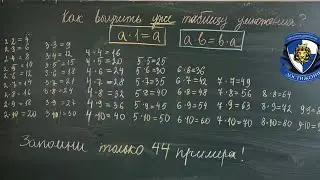 Как выучить уже таблицу умножения?
a·1=a   a·b=b·a
2·2=4
2·3=6   3·3=9   4·4=16
2·4=8   3·4=12   4·5=20   5·5=25
2·5=10   3·5=15   4·6=24   5·6=30   6·6=36
2·6=12   3·6=18   4·7=28   5·7=35   6·7=42   7·7=49
2·7=14   3·7=21   4·8=32   5·8=40   6·8=48   7·8=56   8·8=64
2·8=16   3·8=24   4·9=36   5·9=45   6·9=54   7·9=63   8·9=72
2·9=18   3·9=27   4·10=40   5·10=50   6·10=60   7·10=70   8·10=80
2·10=20   3·10=30
Запомни только 44 примера!